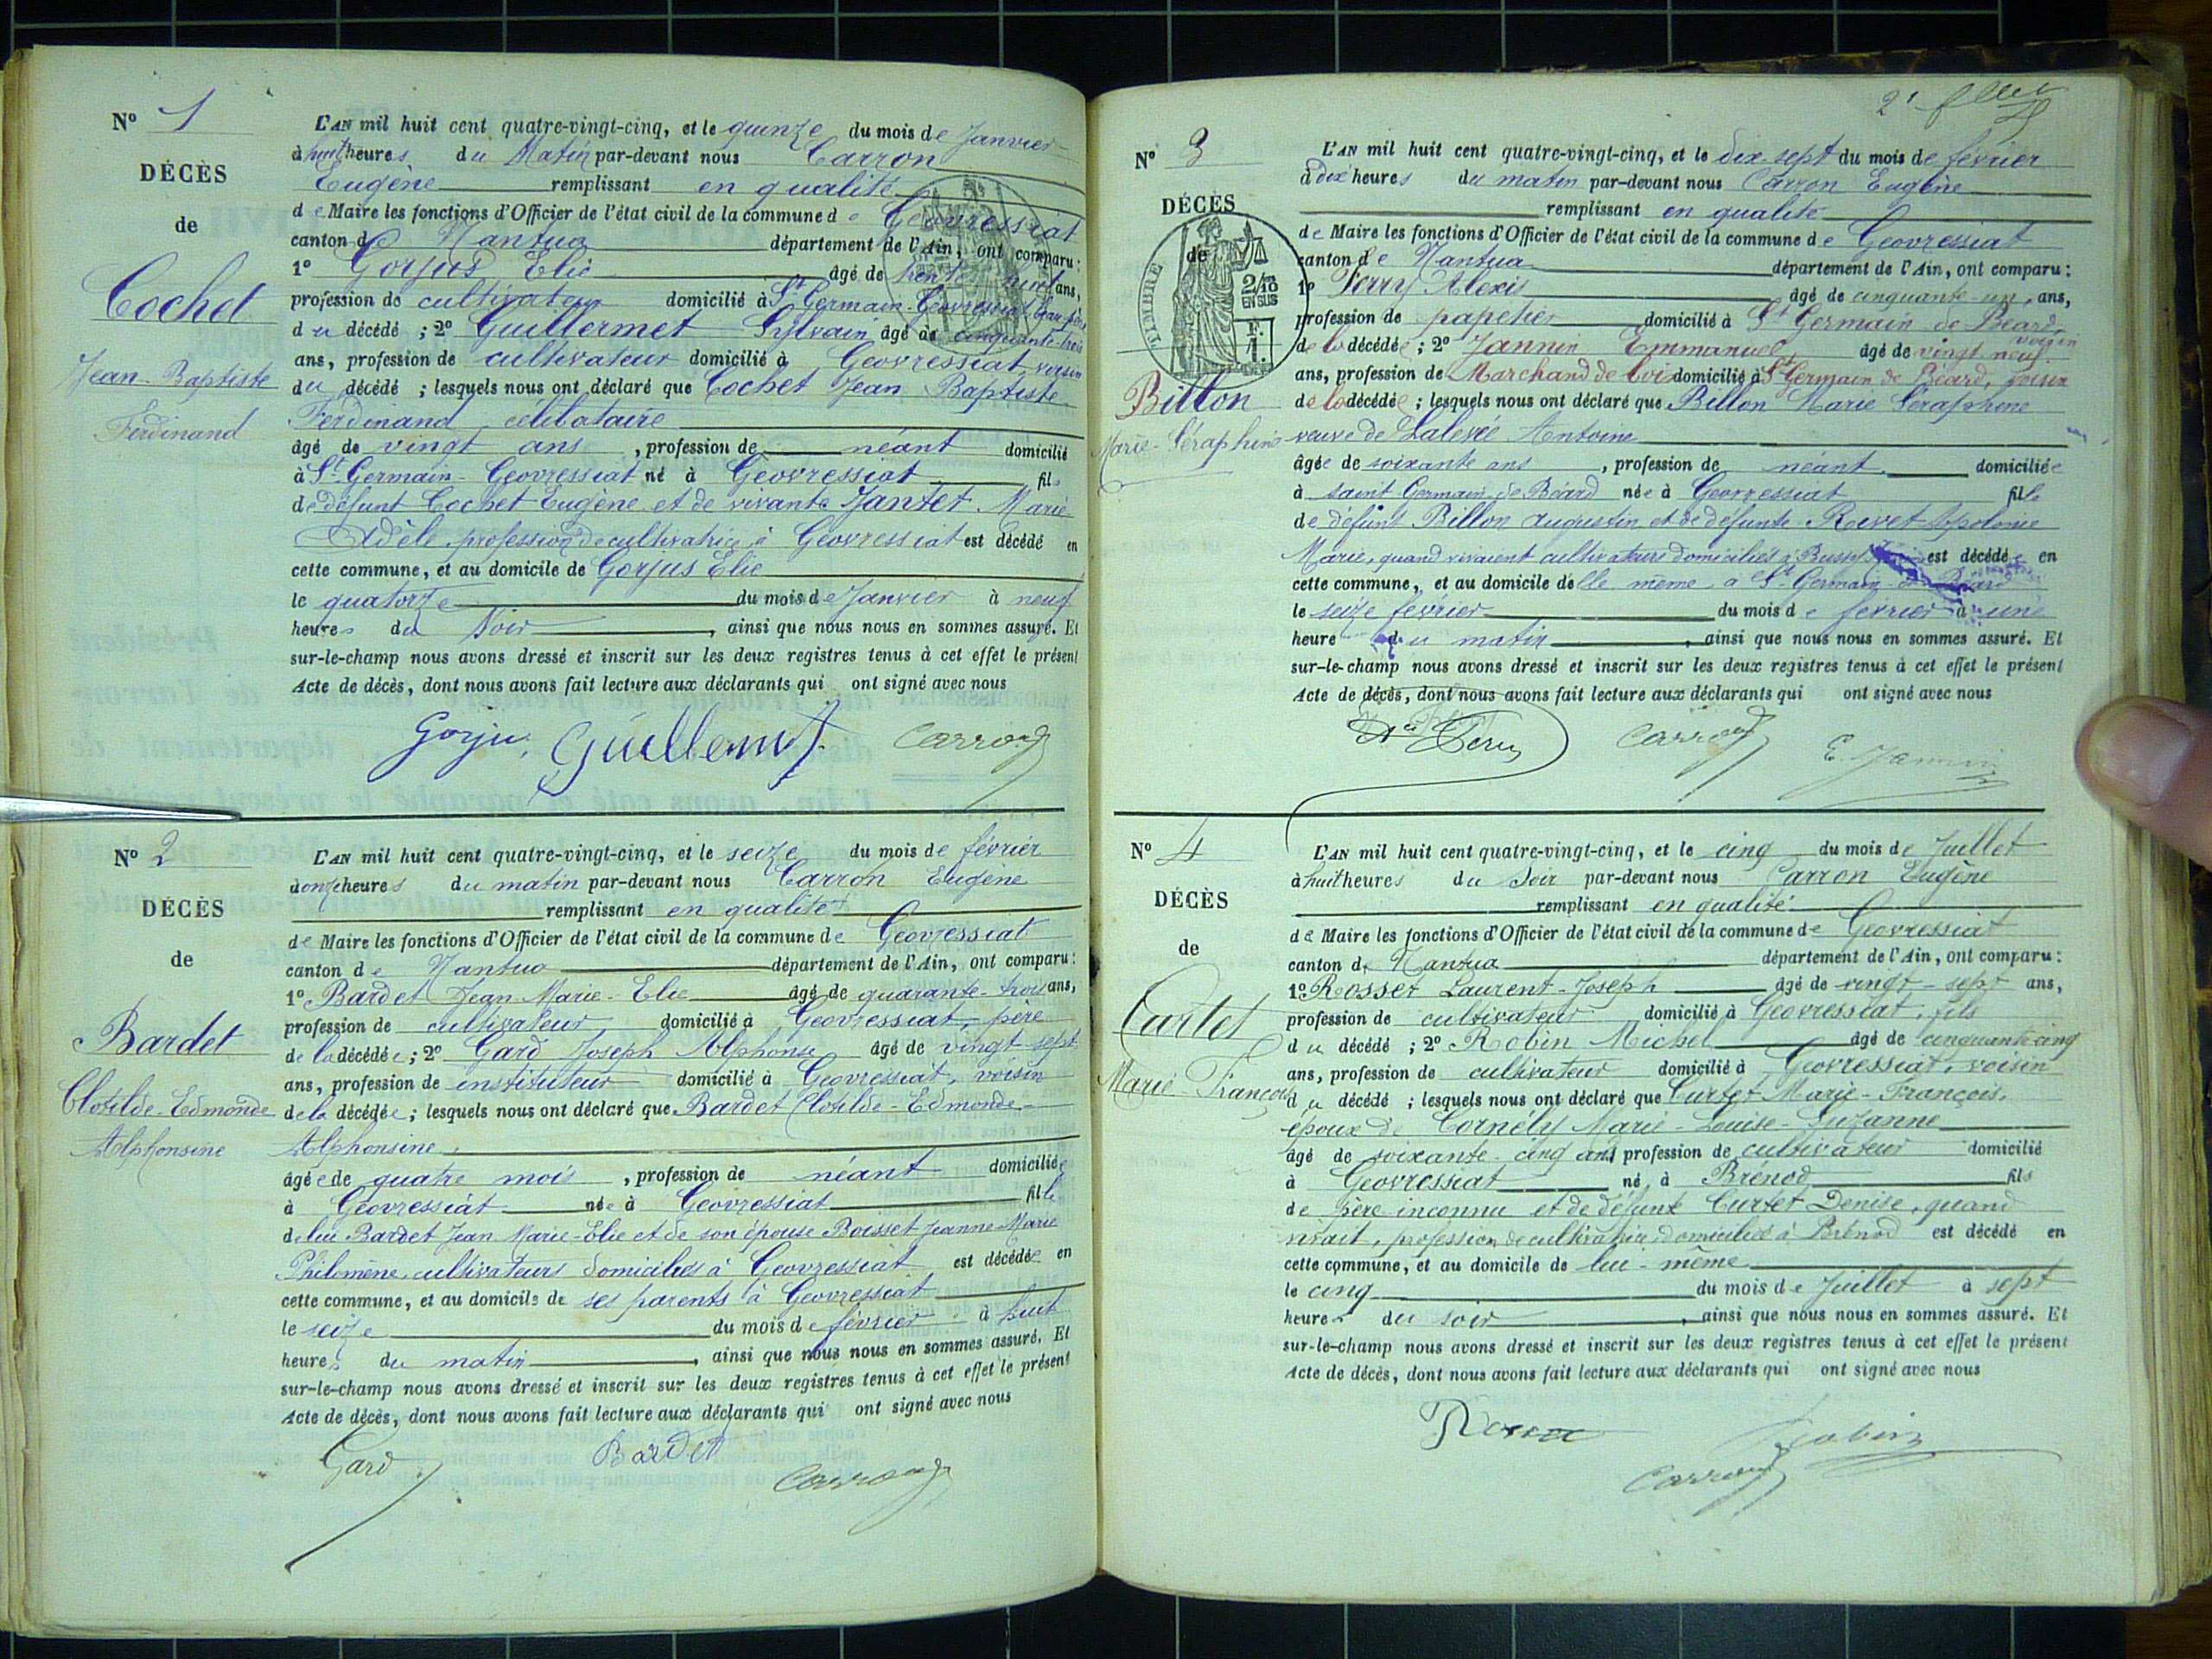 N° 1
DÉCÈS
de
Cochet
Jean-Baptiste
Ferdinand
L'AN mil huit cent quatre-vingt-cinq, et le quinze du mois de Janvier
à huit heures du Matin par-devant nous Carron
Eugène remplissant en qualité
de Maire les fonctions d'Officier de l'état civil de la commune de Géovressiat
canton de Nantua département de l'Ain, ont comparu :
1° Gorjus Elie âgé de trente huit ans,
profession de cultivateur domicilié à St Germain-Géovressiat, beau père
du décédé ; 2° Guillermet Sylvain âgé de cinquante-trois
ans, profession de cultivateur domicilié à Géovressiat, voisin
du décédé ; lesquels nous ont déclaré que Cochet Jean Baptiste
Ferdinand célibataire
âgé de vingt ans , profession de néant domicilié
à St Germain-Géovressiat né à Géovressiat fils
de défunt Cochet Eugène et de vivante Jantet Marie
Adèle, profession de cultivatrice à Géovressiat est décédé en
cette commune, et au domicile de Gorjus Elie
le quatorze du mois de Janvier à neuf
heures du Soir , ainsi que nous nous en sommes assuré. Et
sur-le-champ nous avons dressé et inscrit sur les deux registres tenus à cet effet le présent
Acte de décès, dont nous avons fait lecture aux déclarants qui ont signé avec nous
Gorju Guillermet Carron
N° 2
DÉCÈS
de
Bardet
Clotilde-Edmonde
Alphonsine
L'AN mil huit cent quatre-vingt-cinq, et le seize du mois de février
à onze heures du matin par-devant nous Carron Eugène
remplissant en qualité
de Maire les fonctions d'Officier de l'état civil de la commune de Géovressiat
canton de Nantua département de l'Ain, ont comparu :
1° Bardet Jean-Marie-Elie âgé de quarante-trois ans,
profession de cultivateur domicilié à Géovressiat, père
de la décédée ; 2° Gard Joseph Alphonse âgé de vingt-sept
ans, profession de instituteur domicilié à Géovressiat, voisin
de la décédée ; lesquels nous ont déclaré que Bardet Clotilde-Edmonde-
Alphonsine,
âgée de quatre mois , profession de néant domiciliée
à Géovressiat née à Géovressiat fille
de lui Bardet Jean Marie-Elie et de son épouse Boisset Jeanne-Marie
Philomène, cultivateurs domiciliés à Géovressiat est décédée en
cette commune, et au domicile de ses parents à Géovressiat
le seize du mois de février à huit
heures du matin , ainsi que nous nous en sommes assuré. Et
sur-le-champ nous avons dressé et inscrit sur les deux registres tenus à cet effet le présent
Acte de décès, dont nous avons fait lecture aux déclarants qui ont signé avec nous
Gard Bardet Carron
N° 3
DÉCÈS
de
TIMBRE
2/10
EN SUS
Billon
Marie-Séraphine
L'AN mil huit cent quatre-vingt-cinq, et le dix sept du mois de février
à dix heures du matin par-devant nous Carron Eugène
remplissant en qualité
de Maire les fonctions d'Officier de l'état civil de la commune de Géovressiat
canton de Nantua département de l'Ain, ont comparu :
1° Perry Alexis âgé de cinquante-un, ans,
profession de papetier domicilié à St Germain de Béard, voisin
de la décédée ; 2° Jannin Emmanuel âgé de vingt neuf
ans, profession de Marchand de bois domicilié à St Germain de Béard, voisin
de la décédée ; lesquels nous ont déclaré que Billon Marie Séraphine
veuve de Antoine
âgée de soixante ans , profession de néant domiciliée
à saint Germain de Béard née à Géovressiat fille
de défunt Billon Augustin et de défunte Rivet Apolonie
Marie, quand vivaient cultivateurs domiciliés à est décédée en
cette commune, et au domicile d'elle même à St Germain-de Béard
le seize février du mois de février à une
heure du matin , ainsi que nous nous en sommes assuré. Et
sur-le-champ nous avons dressé et inscrit sur les deux registres tenus à cet effet le présent
Acte de décès, dont nous avons fait lecture aux déclarants qui ont signé avec nous
Carron E. Jannin
N° 4
DÉCÈS
de
Curtet
Marie François
L'AN mil huit cent quatre-vingt-cinq, et le cinq du mois de Juillet
à huit heures du Soir par-devant nous Carron Eugène
remplissant en qualité
de Maire les fonctions d'Officier de l'état civil de la commune de Géovressiat
canton de Nantua département de l'Ain, ont comparu :
1° Rosset Laurent-Joseph âgé de vingt-sept ans,
profession de cultivateur domicilié à Géovressiat, fils
du décédé ; 2° Robin Michel âgé de cinquante cinq
ans, profession de cultivateur domicilié à Géovressiat, voisin
du décédé ; lesquels nous ont déclaré que Curtet Marie-François,
époux de Cornély Marie-Louise-Suzanne
âgé de soixante-cinq ans, profession de cultivateur domicilié
à Géovressiat né à Brénod fils
de père inconnu et de défunte Curtet Denise, quand
vivait, profession de cultivatrice, domiciliée à Brénod est décédé en
cette commune, et au domicile de lui-même
le cinq du mois de Juillet à sept
heures du soir , ainsi que nous nous en sommes assuré. Et
sur-le-champ nous avons dressé et inscrit sur les deux registres tenus à cet effet le présent
Acte de décès, dont nous avons fait lecture aux déclarants qui ont signé avec nous
Robin
Carron